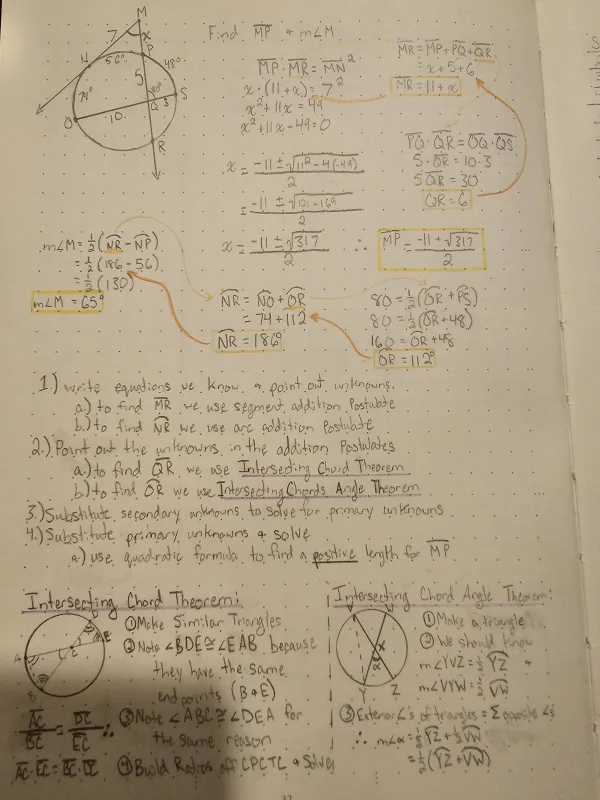 M
7
x
P
56°
48°
N
5
74°
80°
Q
3
S
O
10
R
Find MP & m∠M
MP · MR = MN²
x · (11+x) = 7²
x²+11x = 49
x²+11x-49=0
x = -11 ± √11²-4(-49) / 2
= -11 ± √121+169 / 2
x = -11 ± √317 / 2
∴ MP = -11 + √317 / 2
MR = MP+PQ+QR
= x+5+6
MR = 11+x
PQ · QR = OQ · QS
5 · QR = 10 · 3
5QR = 30
QR = 6
m∠M = 1/2(NR - NP)
= 1/2(186-56)
= 1/2(130)
m∠M = 65°
NR = NO+OR
= 74+112
NR = 186°
80 = 1/2(OR+PS)
80 = 1/2(OR+48)
160 = OR+48
OR = 112°
1.) write equations we know & point out unknowns.
a.) to find MR we use segment addition Postulate
b.) to find NR we use arc addition Postulate
2.) Point out the unknowns in the addition Postulates
a.) to find QR we use Intersecting Chord Theorem
b.) to find OR we use Intersecting Chords Angle Theorem
3.) Substitute secondary unknowns to solve for primary unknowns
4.) Substitute primary unknowns & solve
a.) use quadratic formula to find a positive length for MP
Intersecting Chord Theorem:
D
E
A
C
B
① Make Similar Triangles
② Note ∠BDE ≅ ∠EAB because
they have the same
end points (B & E)
③ Note ∠ABC ≅ ∠DEA for
the same reason
④ Build Ratios off CPCTC & Solve
AC / BC = DC / EC ∴
AC · EC = BC · DC
Intersecting Chord Angle Theorem:
V
W
Y
Z
① Make a triangle
② We should know
m∠YVZ = 1/2 YZ &
m∠VYW = 1/2 VW
③ Exterior ∠'s of triangles = Σ opposite ∠'s
∴ m∠α = 1/2 YZ + 1/2 VW
= 1/2 (YZ + VW)